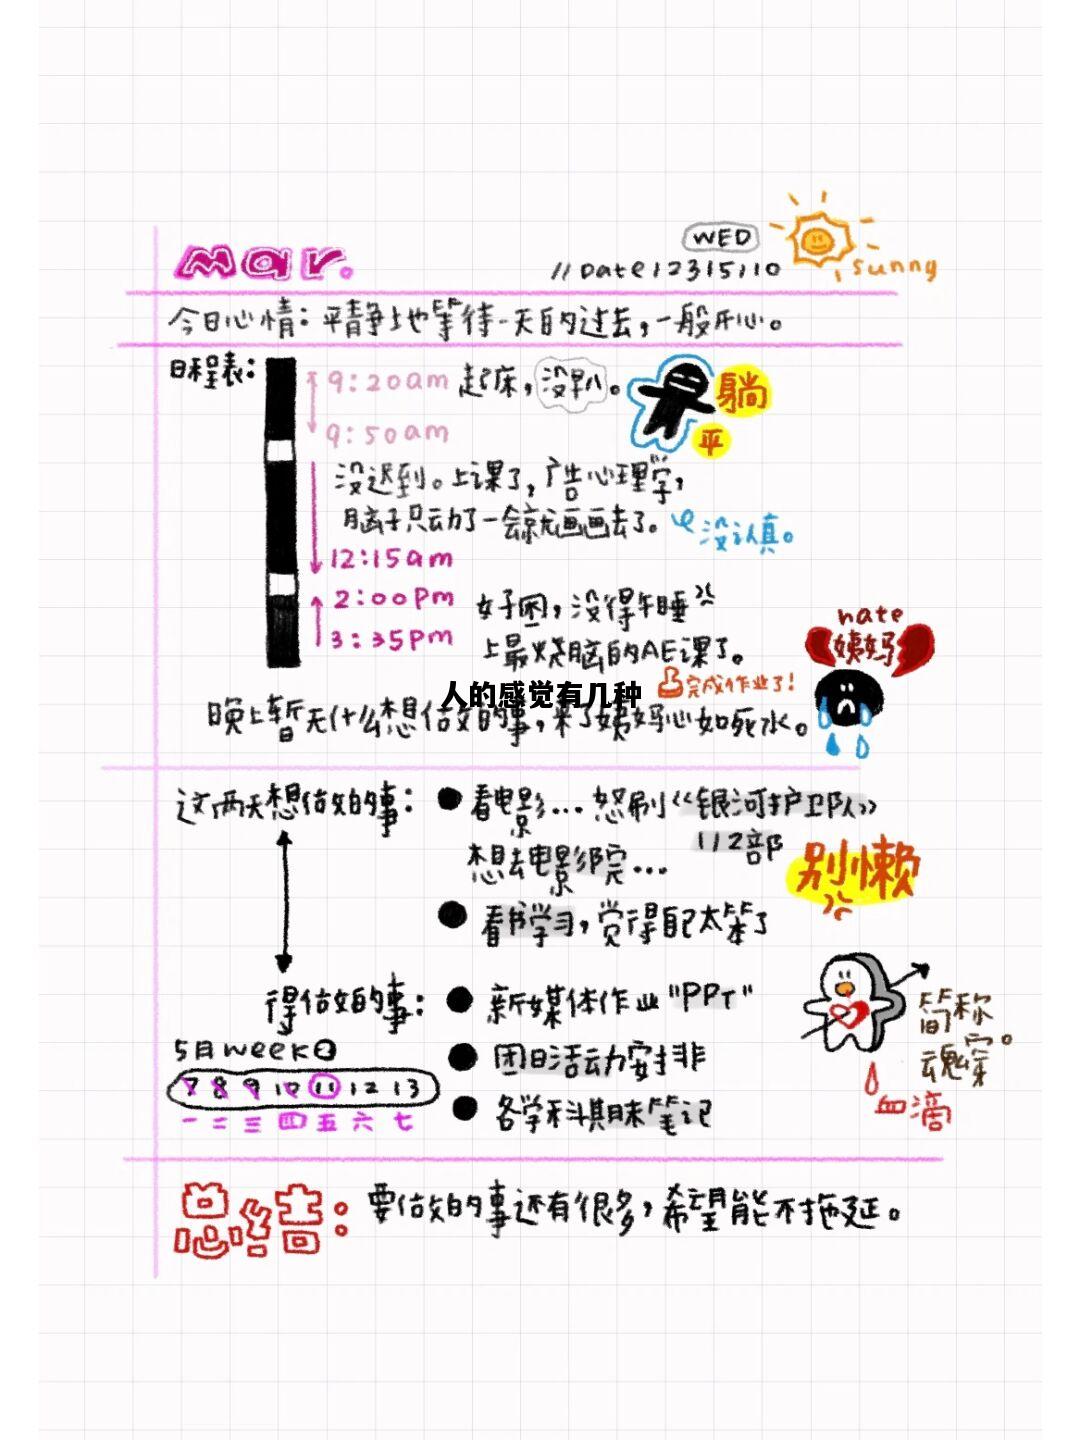 Mar.
WED
//Date 2315/10
sunny
今日心情：平静地等待一天的过去，一般开心。
日程表：
9:20am 起床，没趴。
躺平
9:50am
没迟到。上课了，广告心理学，
脑子只动了一会就画画去了。
没认真。
12:15am
2:00pm 好困，没得午睡
3:35pm 上最烧脑的AE课了。
hate
姨妈
完成作业了！
人的感觉有几种
晚上暂无什么想做的事，来了姨妈心如死水。
这两天想做的事：
看电影…怒刷《银河护卫队》
1/2部
想去电影院…
别懒
看书学习，觉得自己太笨了
得做的事：
新媒体作业"PPT"
简称魂穿。
血滴
5月week2
团日活动安排
7 8 9 10 11 12 13
一 二 三 四 五 六 七
各学科期末笔记
总结：要做的事还有很多，希望能不拖延。